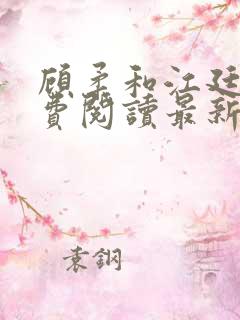 顾柔和江廷
费閱讀最新
袁鋼